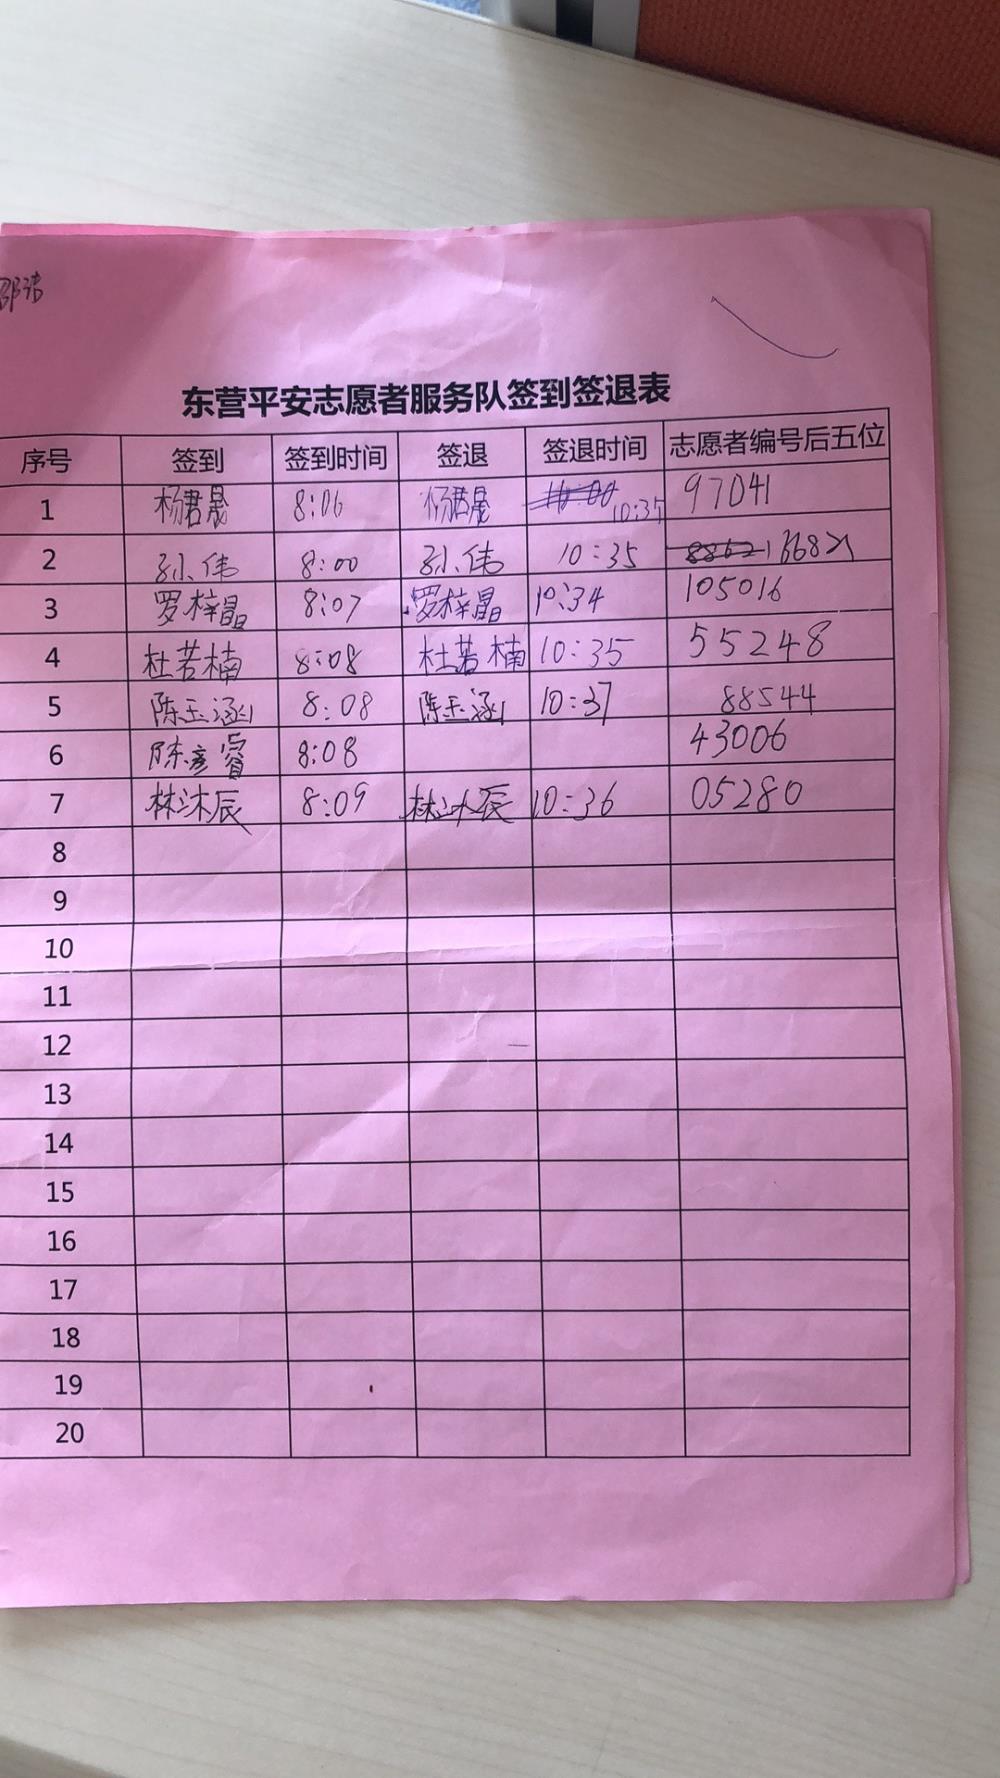 东营平安志愿者服务队签到签退表
序号 签到 签到时间 签退 签退时间 志愿者编号后五位
1 杨君晟 8:06 杨君晟 10:35 97041
2 孙伟 8:00 孙伟 10:35
3 罗梓晶 8:07 罗梓晶 10:34 105016
4 杜若楠 8:08 杜若楠 10:35 55248
5 陈玉涵 8:08 陈玉涵 10:37 88544
6 陈彦睿 8:08 43006
7 林沐辰 8:09 林沐辰 10:36 05280
8
9
10
11
12
13
14
15
16
17
18
19
20